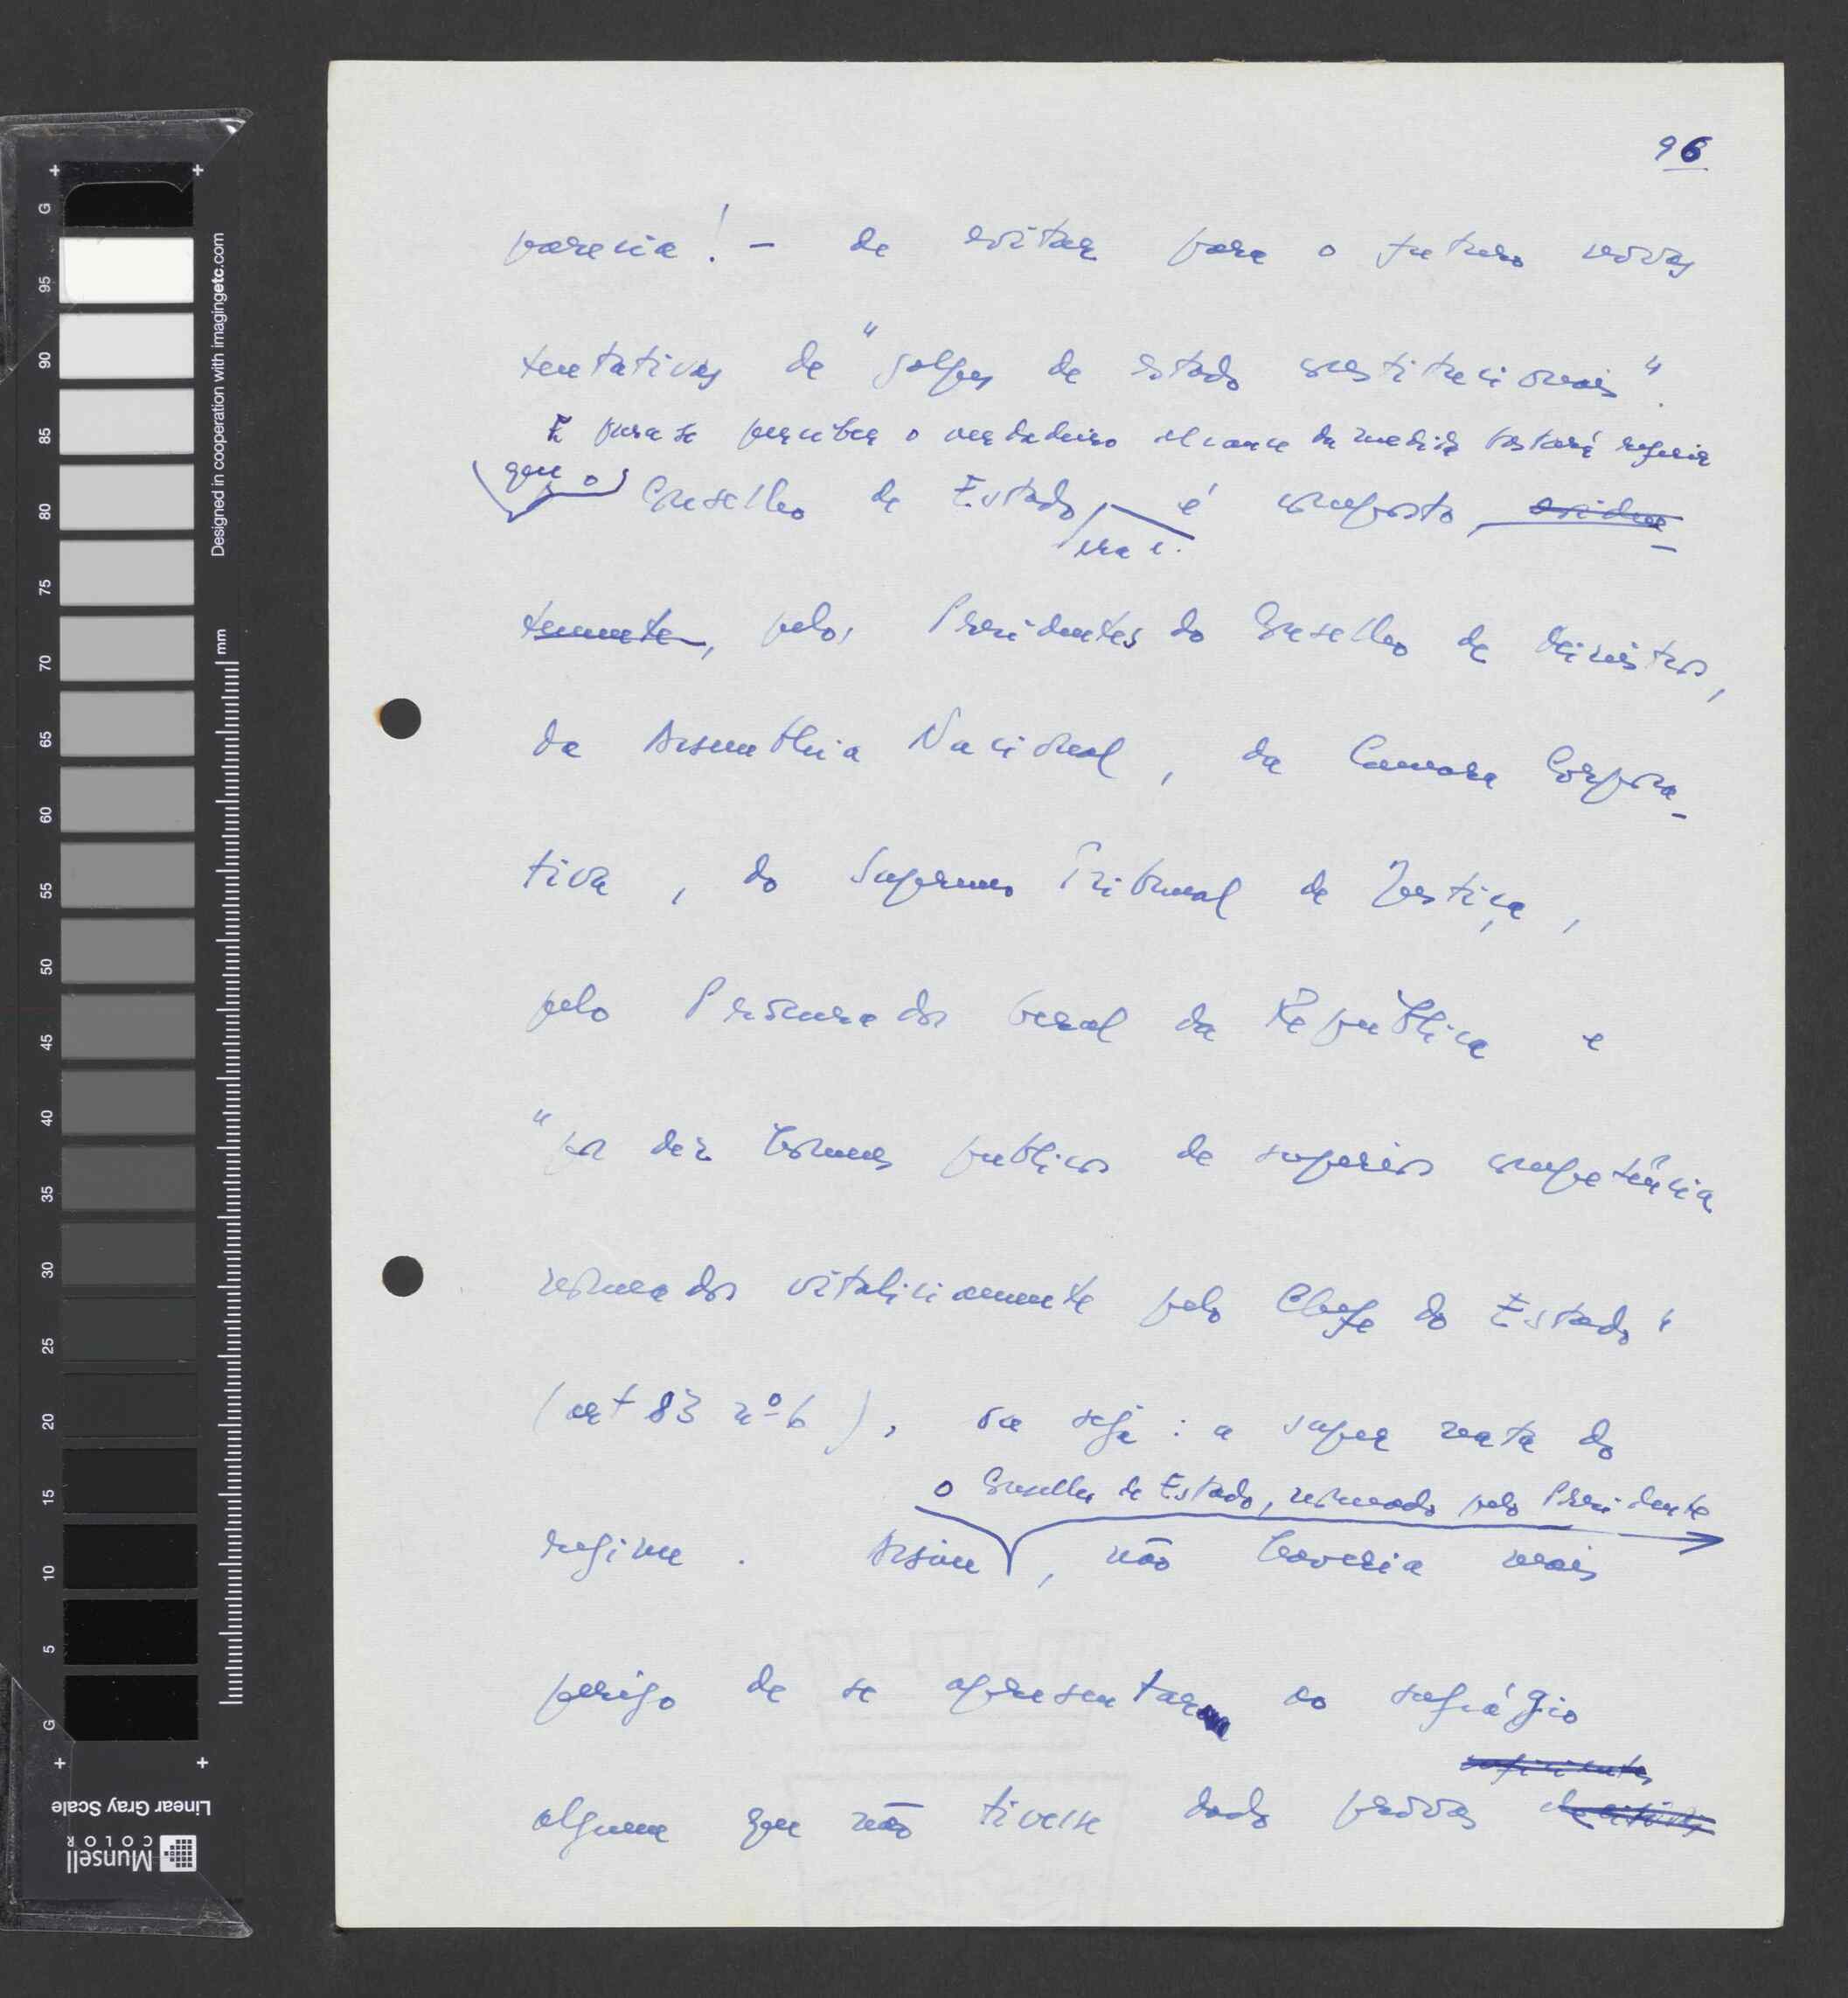 96
parecia! - de evitar para o futuro novas
tentativas de "golpes de estado constitucionais".
E para se perceber o verdadeiro alcance da medida bastará referir
que o Conselho de Estado, é composto, eviden-
era c.
temente, pelos Presidentes do Conselho de Ministros,
da Assembleia Nacional, da Camara Corpora-
tiva, do Supremo Tribunal de Justiça,
pelo Procurador Geral da Republica e
"por dez homens publicos de superior competência
nomeados vitaliciamente pelo Chefe do Estado"
(art 83 nº 6), ou seja: a super nata do
o Conselho de Estado, nomeado pelo Presidente
regime. Assim, não haveria mais
perigo de se apresentar ao sufrágio
suficientes
alguem que não tivesse dado provas
G 95 90 85 80 75 70 65 60 55 50 45 40 35 30 25 20 15 10 5 G
Designed in cooperation with imagingetc.com
mm
Linear Gray Scale
Munsell
COLOR